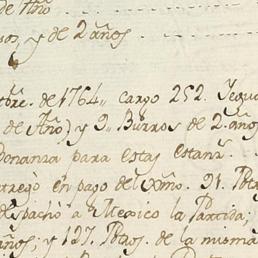 de Año
sos, y de 2 años.
bre. de 1764,, cargo 252.
de Año) y 9,, Burros de 2. años
Bonanza para estas estans.
tregò en pago del xmo. 91. Ptros
despachò a Mexico la Partida;
años; y 127. Ptros. de la misma